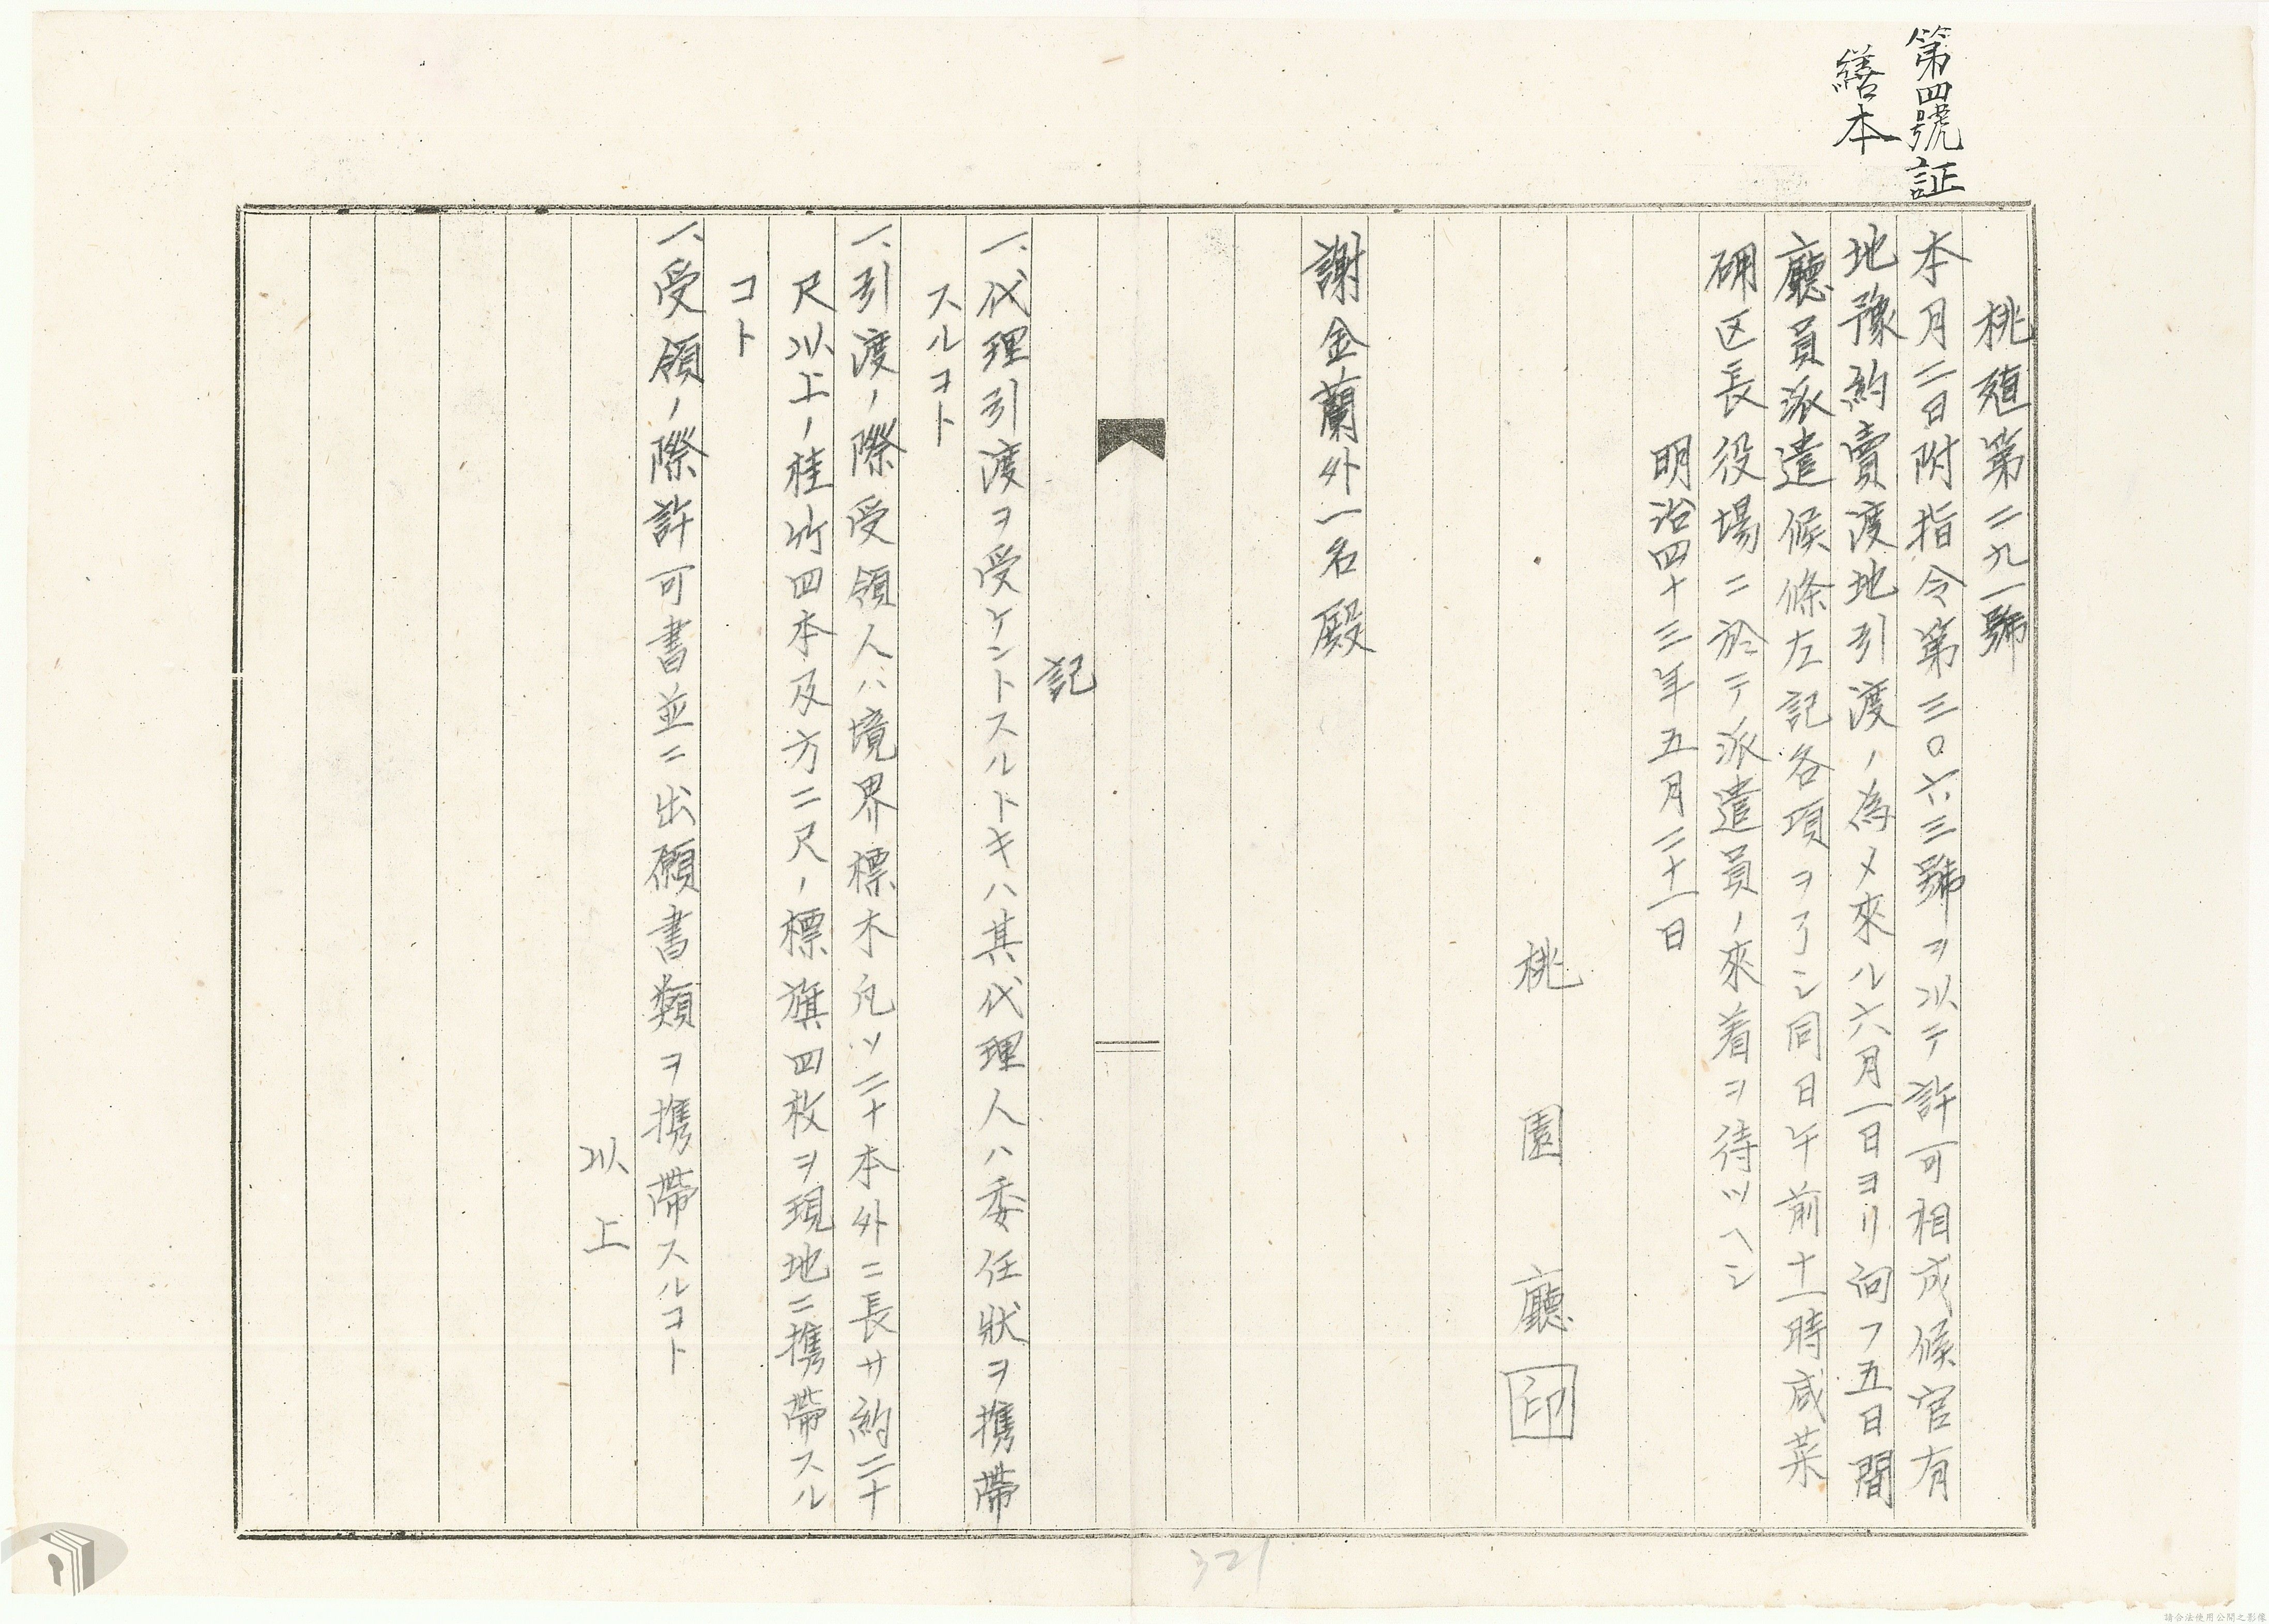 第四號証
繕本
桃殖第二九一號
本月二日附指令第三〇六三號ヲ以テ許可相成候官有
地豫約賣渡地引渡ノ為メ來ル六月一日ヨリ向フ五日間
廳員派遣候條左記各項ヲ了シ同日午前十一時咸菜
硼区長役場ニ於テ派遣員ノ來着ヲ待ツヘシ
明治四十三年五月二十一日
桃園廳印
謝金蘭外一名殿
記
一、代理引渡ヲ受ケントスルトキハ其代理人ハ委任狀ヲ携帶
スルコト
一、引渡ノ際受領人ハ境界標木凡ソ二十本外ニ長サ約二十
尺以上ノ桂竹四本及方二尺ノ標旗四枚ヲ現地ニ携帶スル
コト
一、受領ノ際許可書並ニ出願書類ヲ携帶スルコト
以上
321
請合法使用公開之影像